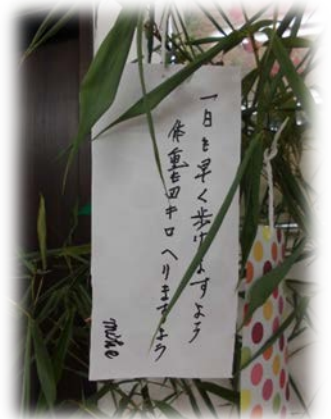 一日も早く歩けますよう
体重も四キロへりますよう
mike